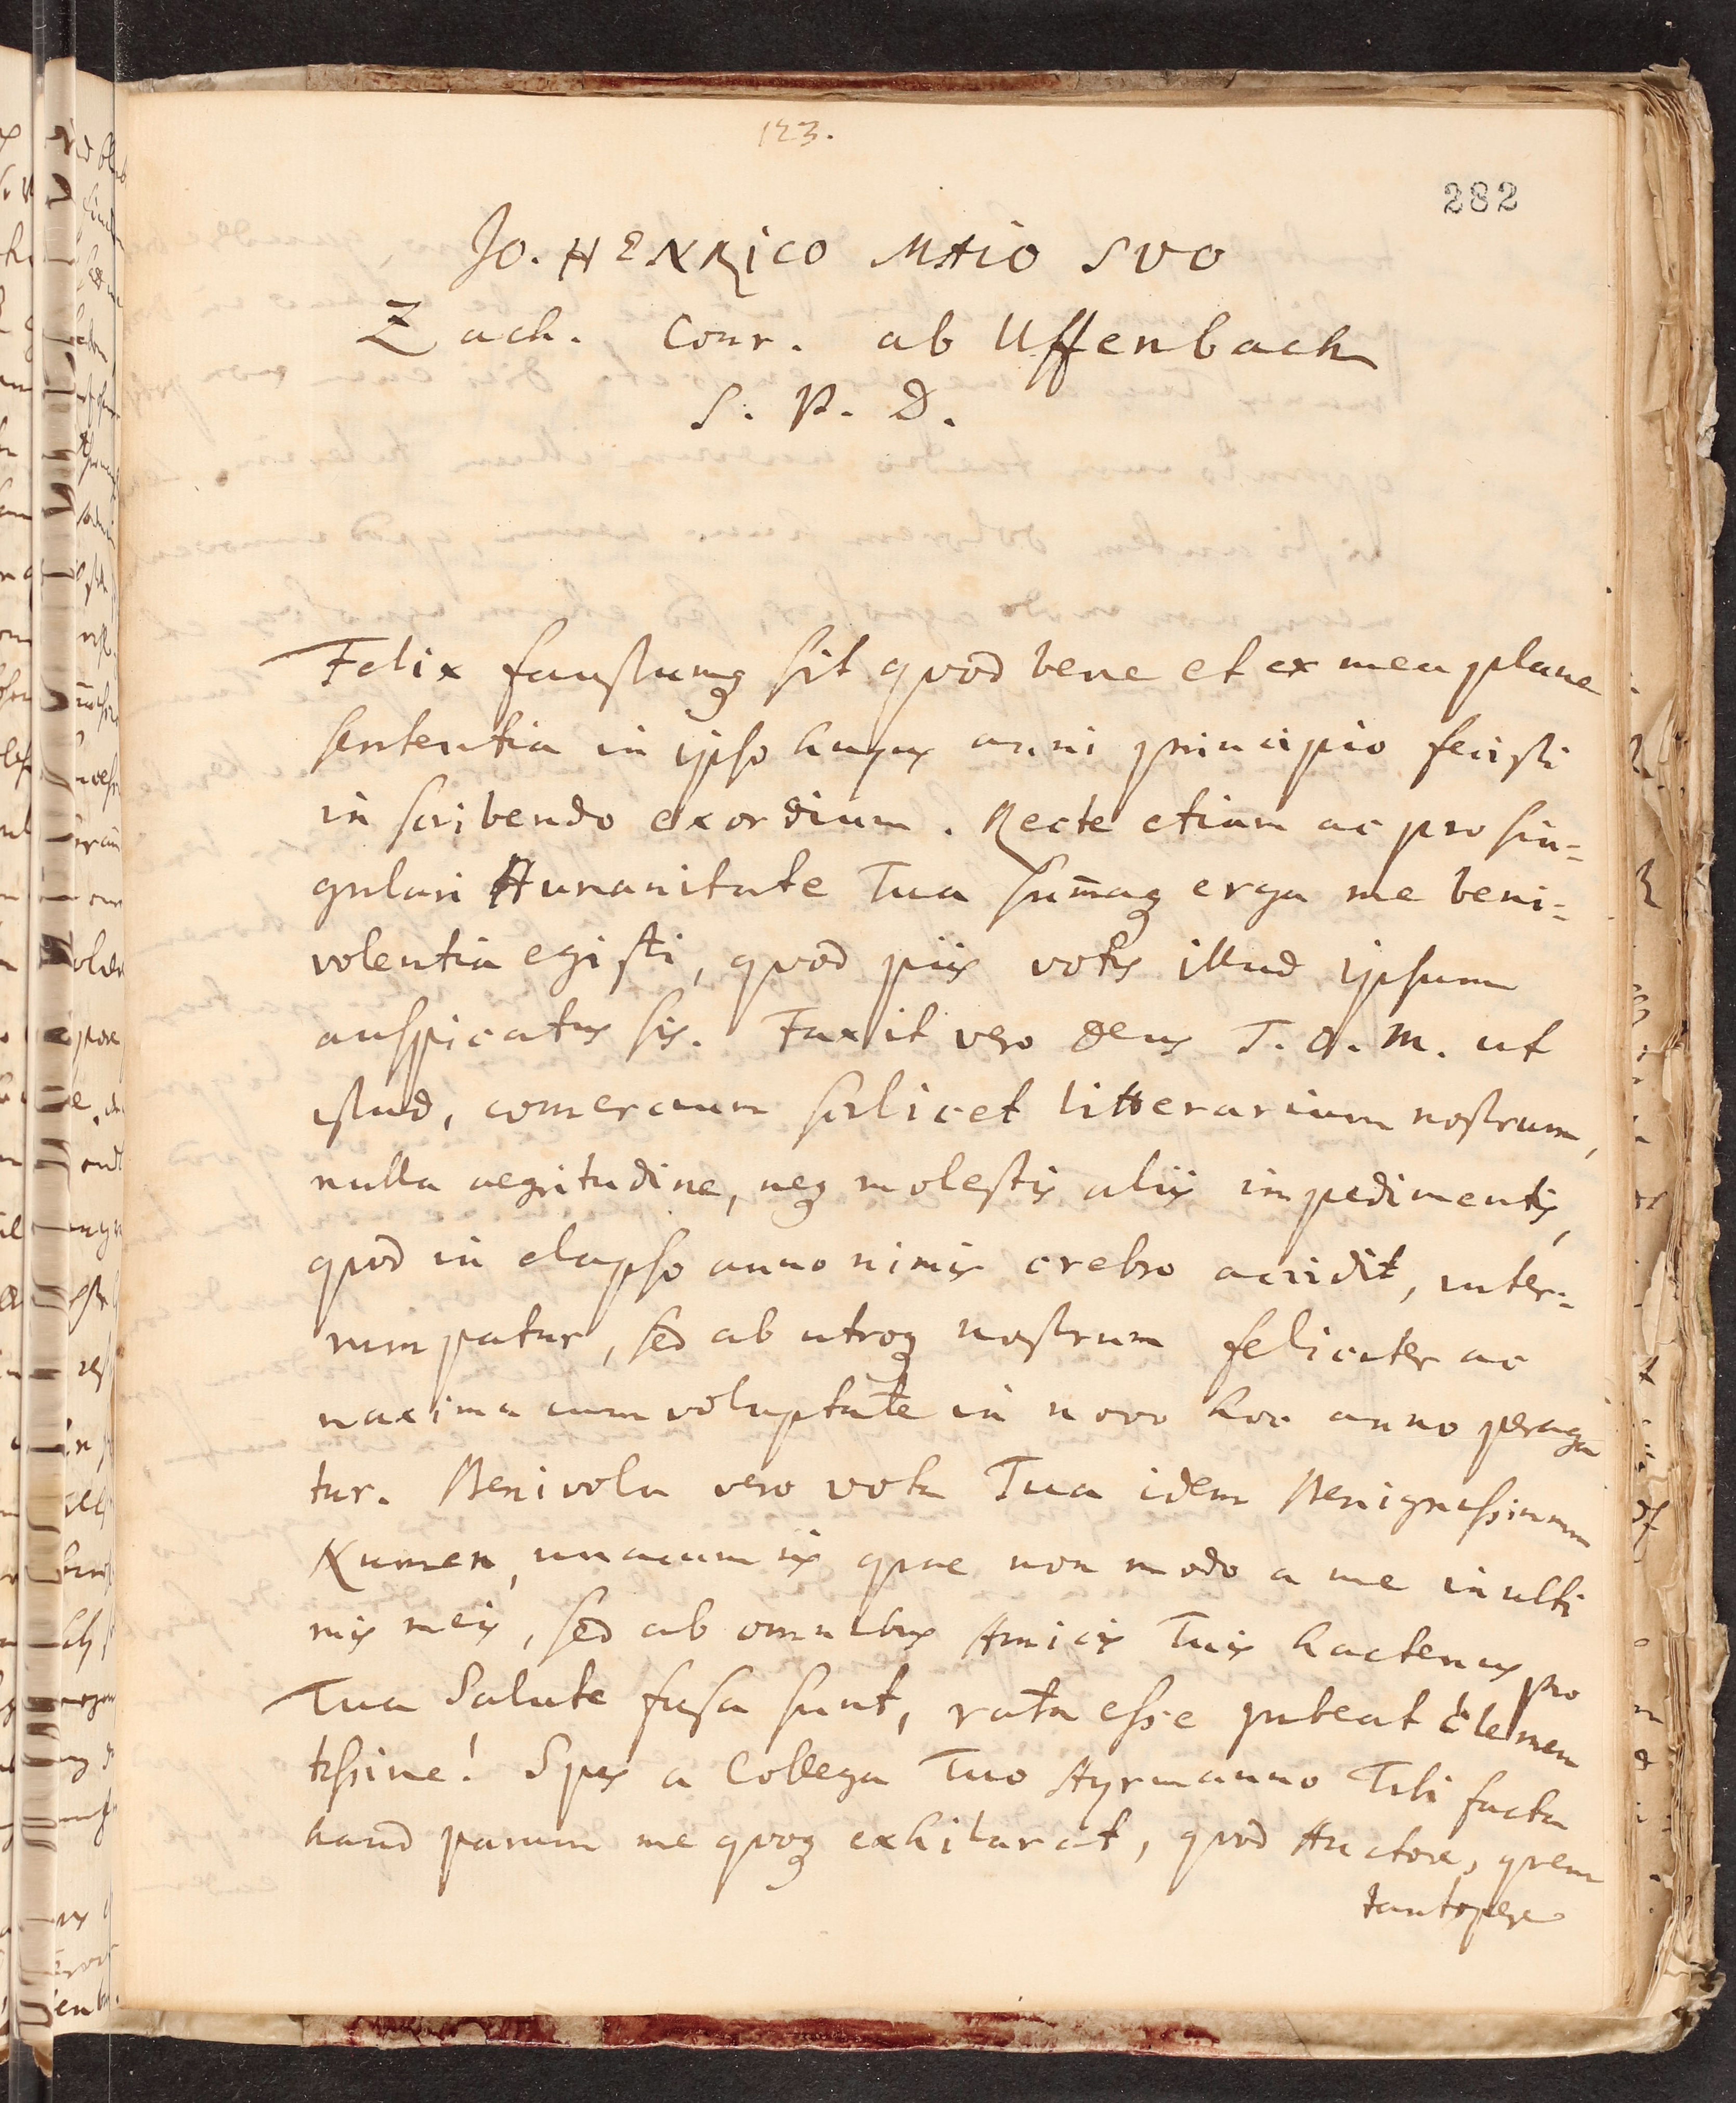 123.
282
JO. HENRICO MAIO SUO
Zach. Conr. ab Uffenbach
S. P. D.
Felix faustumq sit quod bene et ex mea plane
sententia in ipso hujus anni principio fecisti
in scribendo exordium. Recte etiam ac pro sin=
gulari Humanitate Tua sum̄aq erga me beni=
volentia egisti, quod piis votis illud ipsum
auspicatus sis. Faxit vero Deus T. O. M. ut
istud, com̄ercium scilicet litterarium nostrum,
nulla aegritudine, neq molestis aliis impedimentis,
quod in elapso anno nimis crebro accidit, inter=
rumpatur, sed ab utroq nostrum feliciter ac
maxima cum voluptate in novo hoc anno peraga
tur. Benivola vero vota Tua idem Benignissimum
Numen, unacum iis quae non modo a me in ulti
mis meis, sed ab omnibus Amicis Tuis hactenus pro
Tua Salute fusa sunt, rata esse jubeat clemen
tissime! Spes a Collega Tuo Ayrmanno Tibi facta
haud parum me quoq exhilarat, quod Auctore, quem
tantopere